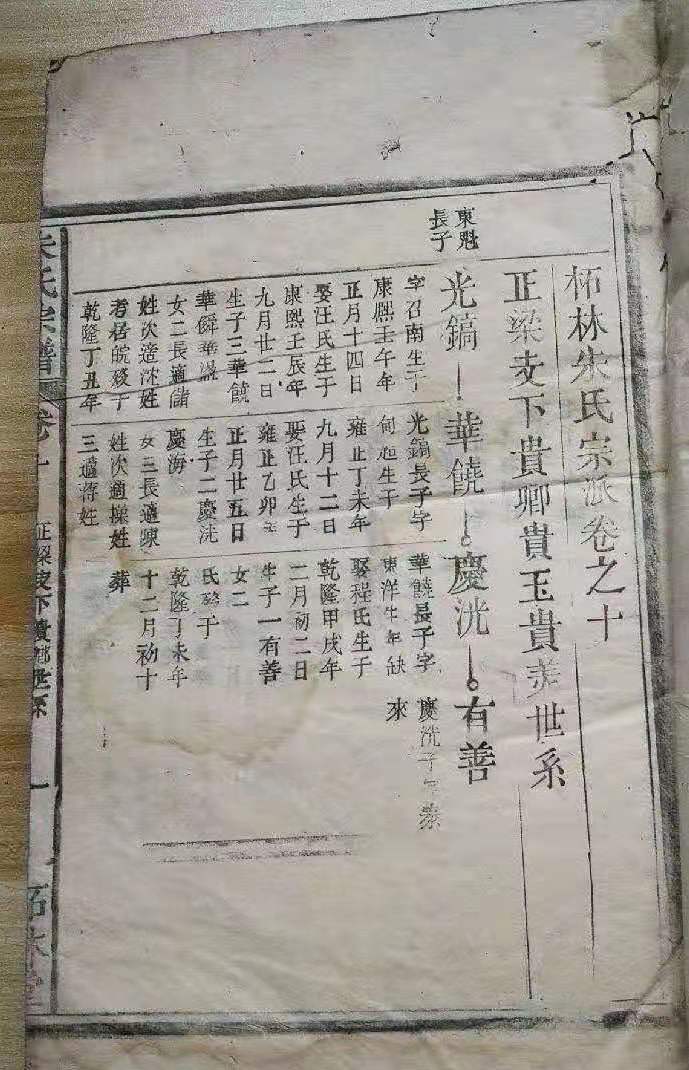 柘林朱氏宗派卷之十
正梁支下貴卿貴玉貴美世系
東魁
長子
光鎬 華饒 慶洸 有善
字召南生于
康熙壬午年
正月十四日
娶汪氏生于
康熙壬辰年
九月廿二日
生子三華饒
華舜華
女二長適儲
姓次適沈姓
考居皖歿于
乾隆丁丑年
光鎬長子字
生于
雍正丁未年
九月十二日
娶汪氏生于
雍正乙卯年
正月廿五日
生子二慶洸
慶海
女三長適陳
姓次適操姓
三適蔣姓
華饒長子字
東洋生年缺
娶程氏生于
乾隆甲戌年
二月初二日
生子一有善
女二
氏歿于
乾隆丁未年
十二月初十
葬
慶洸子
來
朱氏宗譜 卷十 正梁支下貴卿世系 一